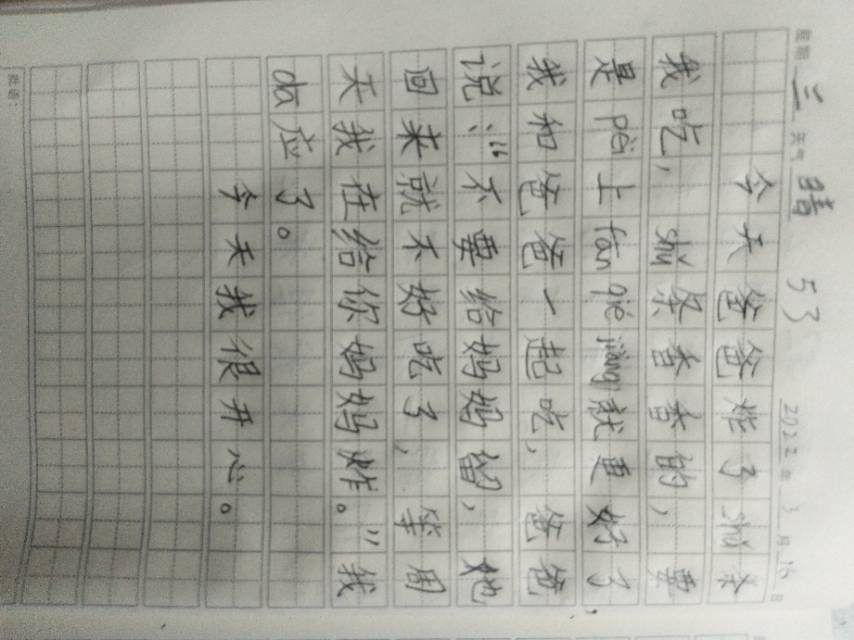 星期三 天气晴 53 2022年3月16日
今天爸爸炸了shǔ条
我吃，shǔ条香香的，要
是pèi上fān qié jiàng就更好了，
我和爸爸一起吃，爸爸
说：“不要给妈妈留，她
回来就不好吃了，等周
天我在给你妈妈炸。”我
dā应了。
今天我很开心。